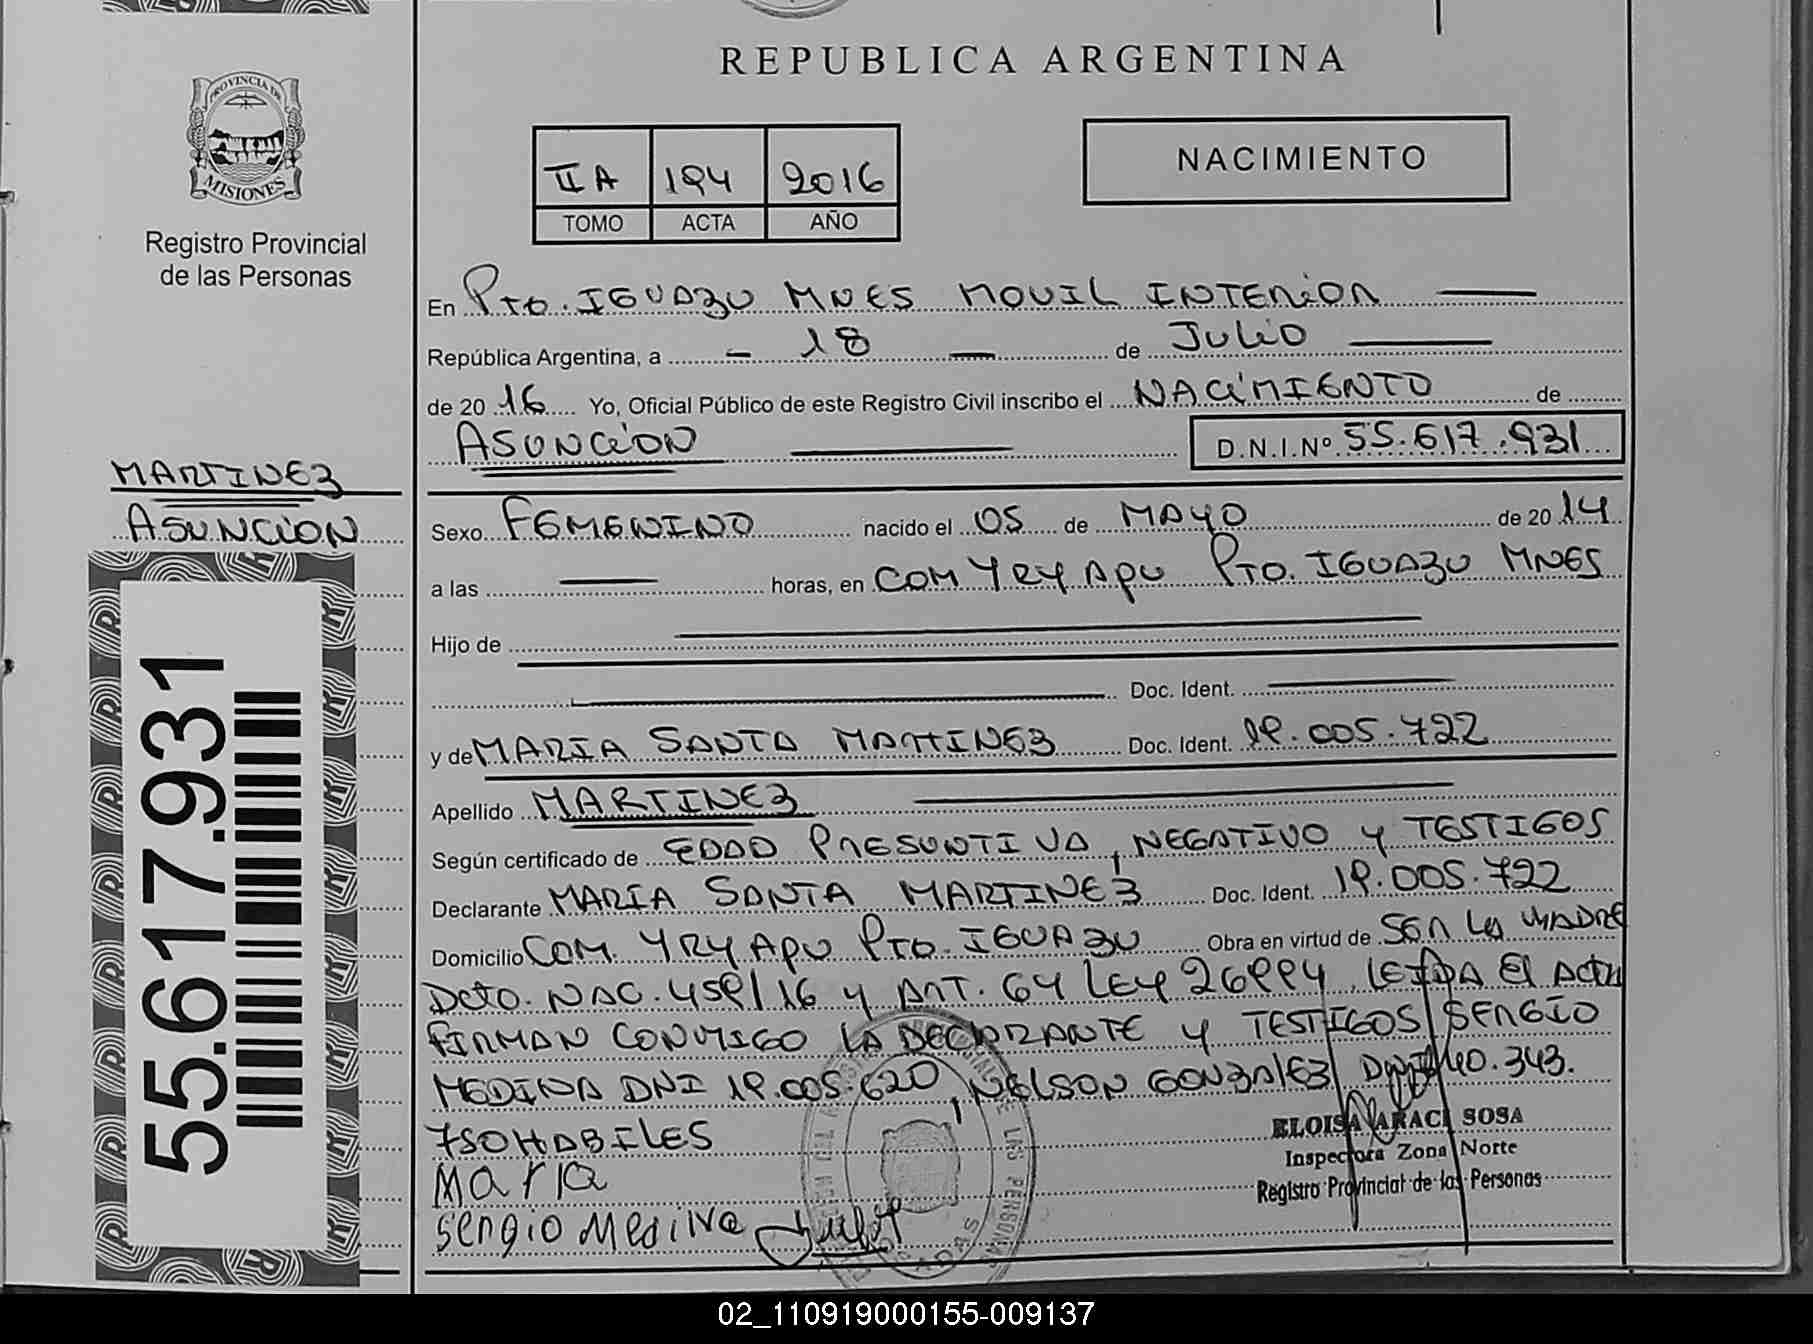 REPUBLICA ARGENTINA
PROVINCIA DE
MISIONES
Registro Provincial
de las Personas
IIA 194 2016
TOMO ACTA AÑO
NACIMIENTO
En Pto. IGUAZU MNES MOVIL INTERIOR
República Argentina, a - 18 - de JULIO
de 2016 Yo, Oficial Público de este Registro Civil inscribo el NACIMIENTO de
ASUNCION D.N.I.Nº 55.617.931
MARTINEZ
ASUNCION
Sexo FEMENINO nacido el 05 de MAYO de 2014
a las horas, en COM YRY APU PTO. IGUAZU MNES
Hijo de
Doc. Ident.
y de MARIA SANTA MARTINEZ Doc. Ident. 19.005.722
Apellido MARTINEZ
Según certificado de EDAD PRESUNTIVA, NEGATIVO Y TESTIGOS
Declarante MARIA SANTA MARTINEZ Doc. Ident. 19.005.722
Domicilio COM. YRY APU PTO. IGUAZU Obra en virtud de SER LA MADRE
Dcto. NAC. 459/16 y ART. 64 LEY 26994, LEIDA El Acta
FIRMAN CONMIGO LA DECLARANTE Y TESTIGOS SERGIO
MEDINA DNI 19.005.620, NELSON GONZALEZ DNI 40.343.
750 HABILES
Maria
Sergio Medina
ELOISA ARACI SOSA
Inspectora Zona Norte
Registro Provincial de las Personas
55.617.931
02_110919000155-009137